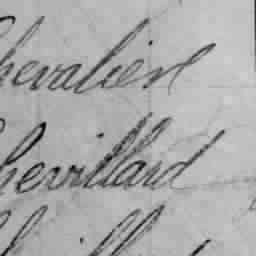 Chevalier
Chevillard